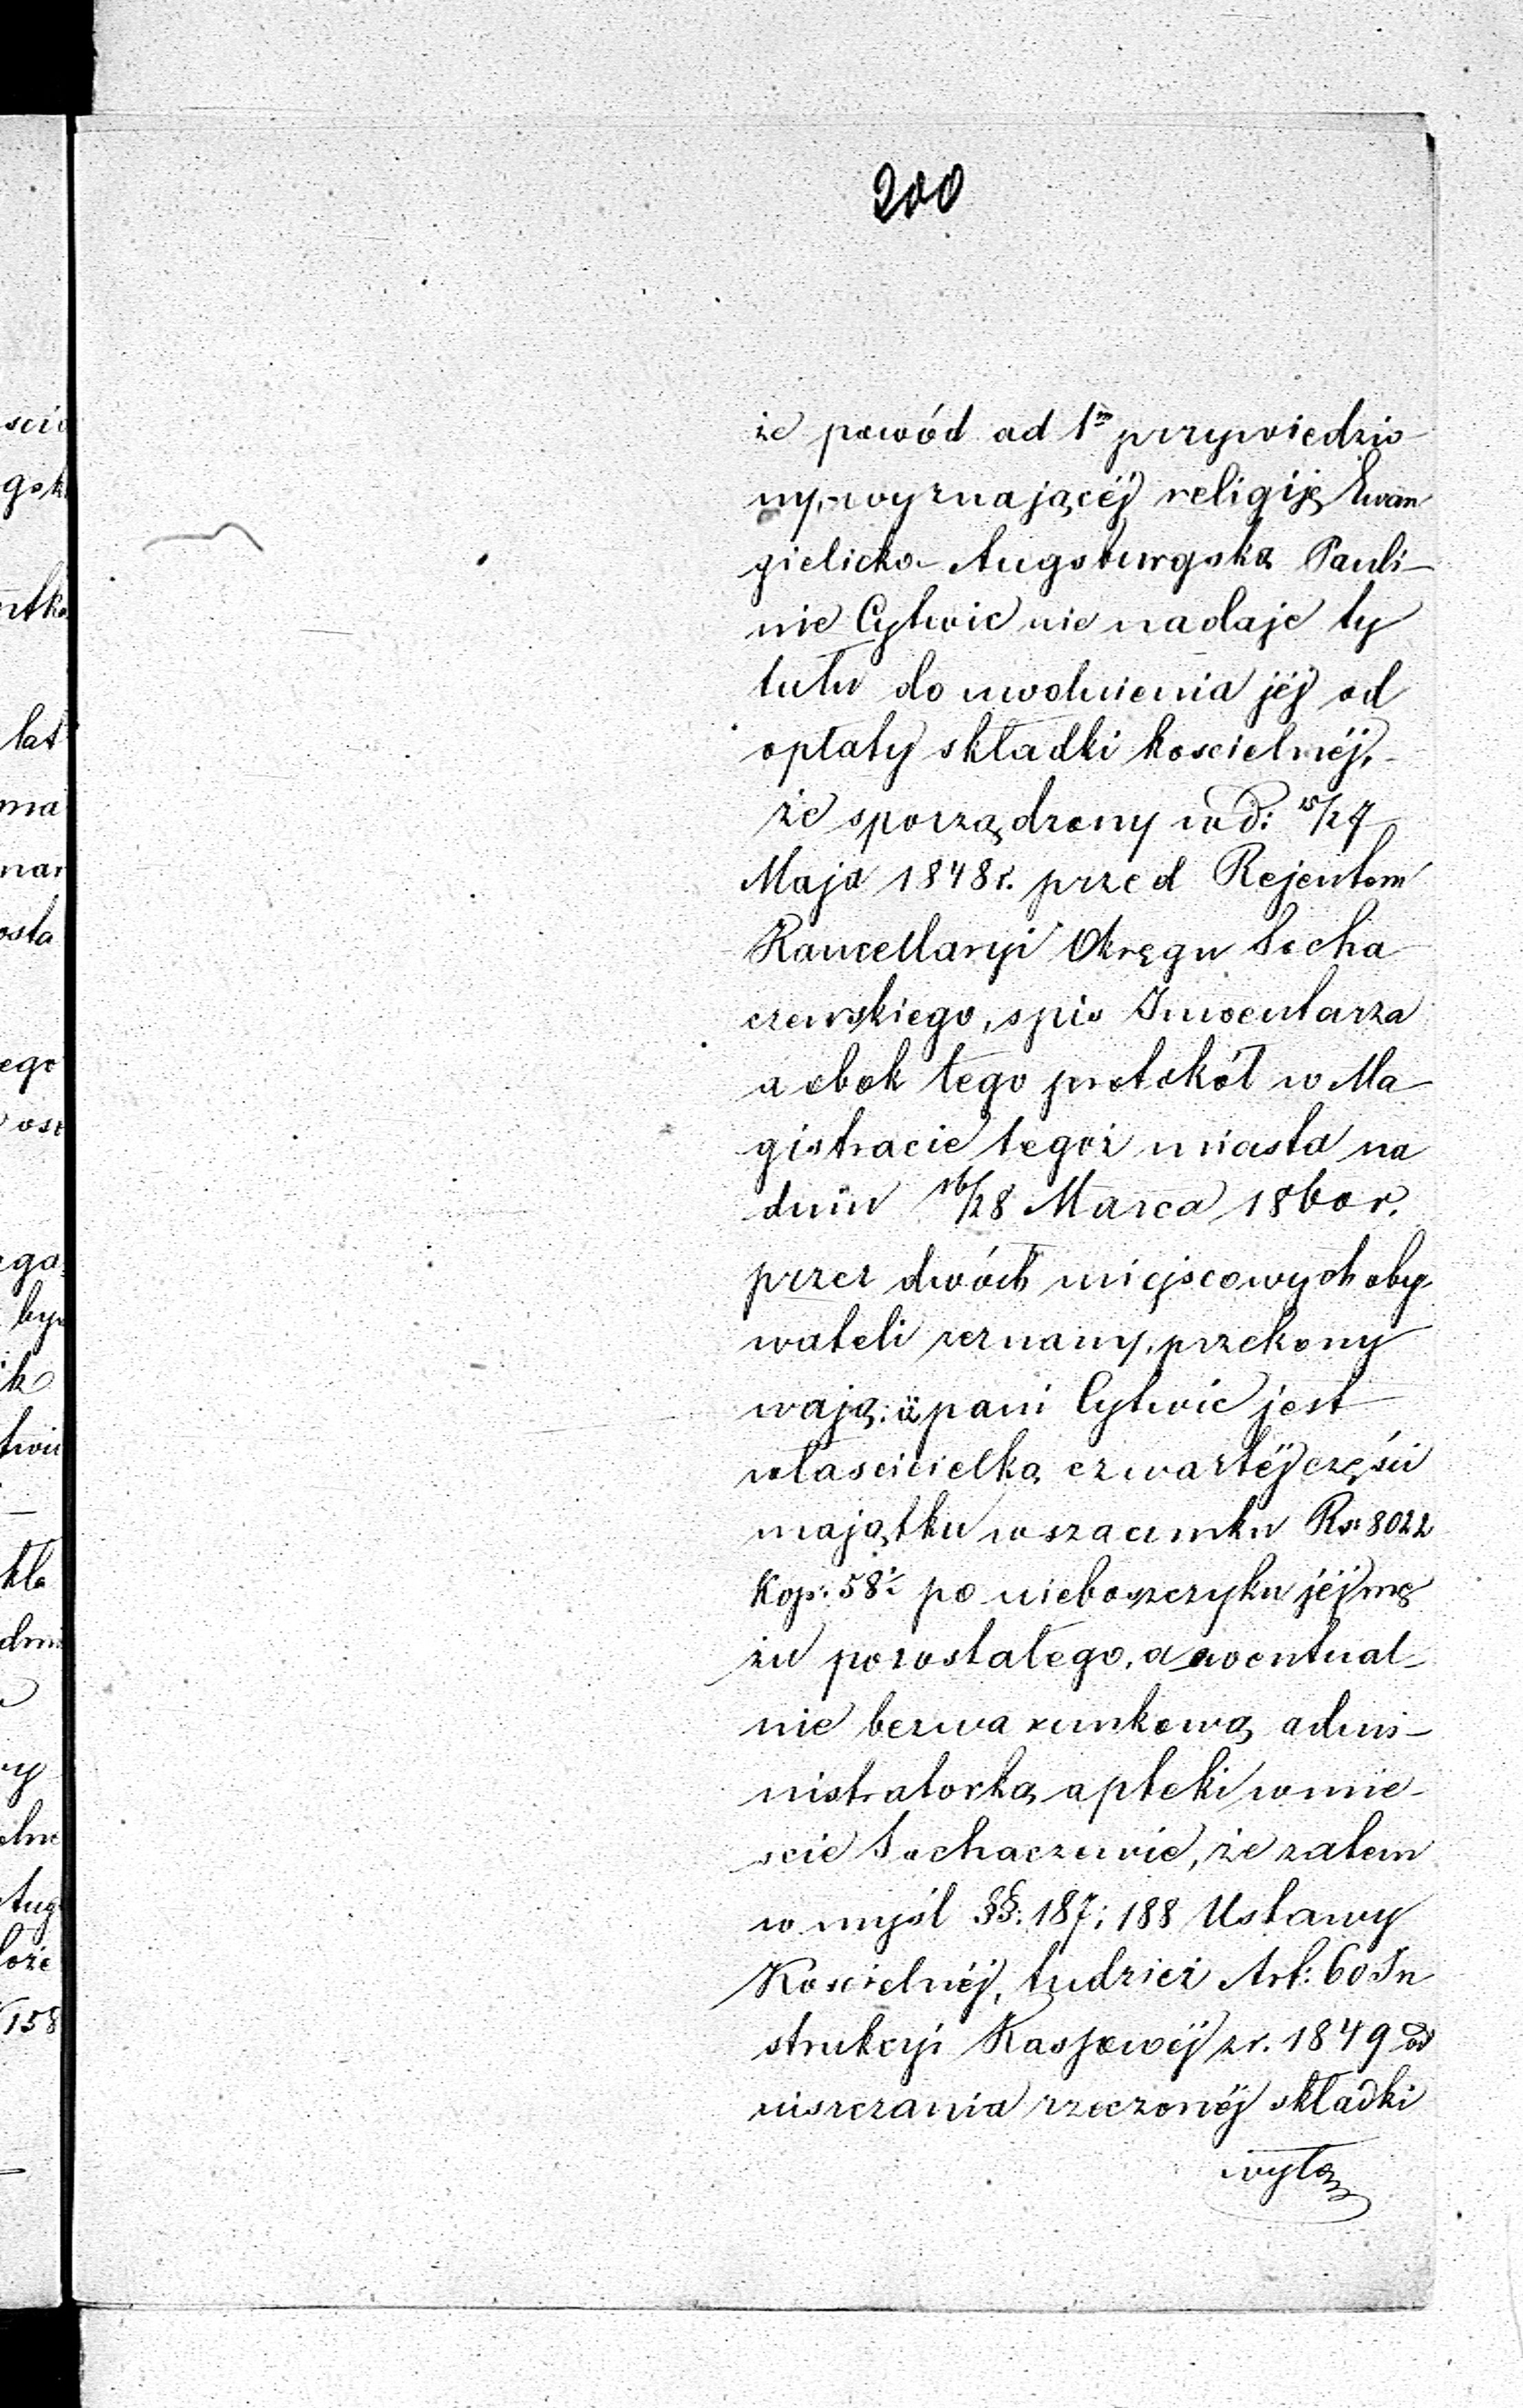 200
że powód ad 1m przywiedzio
ny, wyznającéj religiję Ewan
gielicko-Augsburgską Pauli-
nie Cytwic nie nadaje ty
tułu do uwolnienia jéj od
opłaty składki koscielnéj,-
że sporządzony w d: 15/27
Maja 1848 r. przed Rejentem
Kancellaryi Okręgu Socha
czewskiego, spis Inwentarza
a obok tego protokół w Ma
gistracie tegoż miasta na
dniu 16/28 Marca 1860 r.
przez dwóch miejscowych oby
wateli zeznany, przekony
wają: iż pani Cytwic jest
włascicielką czwartéj części
majątku w szacunku Rs: 8022
Kop: 58½ po nieboszczyku jéj mę
żu pozostałego, a ewentual-
nie bezwarunkową admi-
nistratorką apteki w mie-
scie Sochaczewie, że zatem
w myśl §§: 187; 188 Ustawy
Koscielnéj, tudzież Art: 60 In
strukcyi Kassowéj z r. 1849 od
uiszczania rzeczonéj składki
wyłą
scio
gsk
ntka
lat
ma
nar
osta
ego
ose
ega
byn
ik
twic
kła
dni
ry
elne
tug
łoże
158